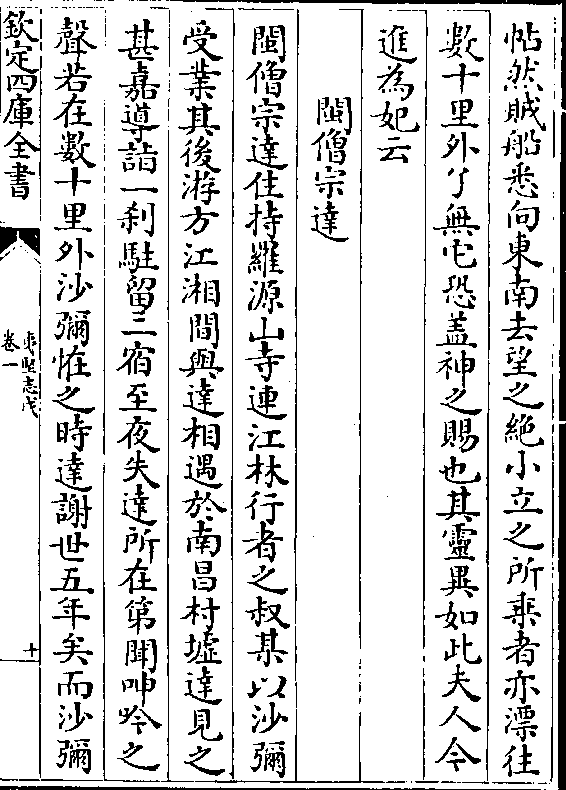 帖然賊船悉向東南去望之絶小立之所乗者亦漂往
數十里外了無它恐盖神之賜也其靈異如此夫人今
進為妃云
閩僧宗達
閩僧宗達住持羅源山寺連江林行者之叔某以沙彌
受業其後游方江湘間與達相遇於南昌村墟達見之
甚嘉導詣一刹駐留三宿至夜失達所在第聞呻吟之
聲若在數十里外沙彌怪之時達謝世五年矣而沙彌
欽定四庫全書
夷堅志戊
卷一
十